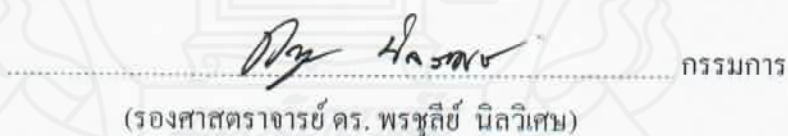 กรรมการ
(รองศาสตราจารย์ ดร. พรชุลีย์ นิลวิเศษ)